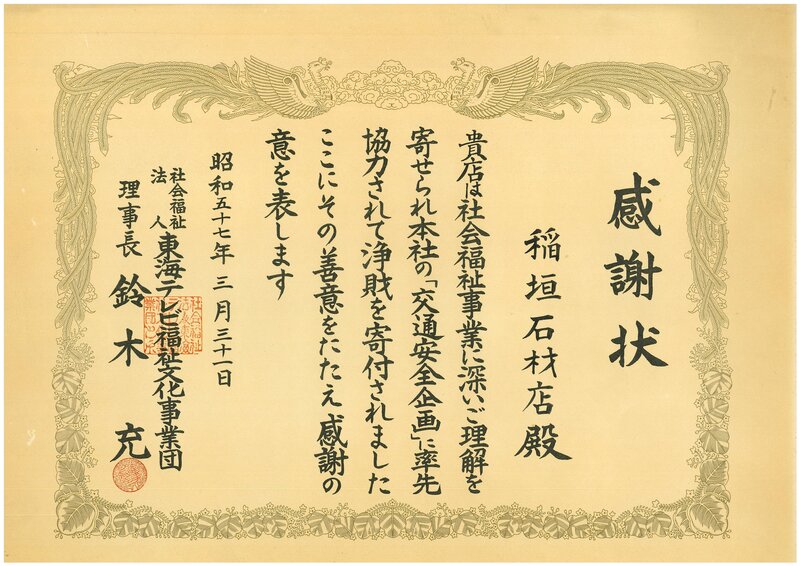 感謝状
稲垣石材店殿
貴店は社会福祉事業に深いご理解を
寄せられ本社の「交通安全企画」に率先
協力されて浄財を寄付されました
ここにその善意をたたえ感謝の
意を表します
昭和五十七年三月三十一日
社会福祉
法人
東海テレビ福祉文化事業団
理事長 鈴木充